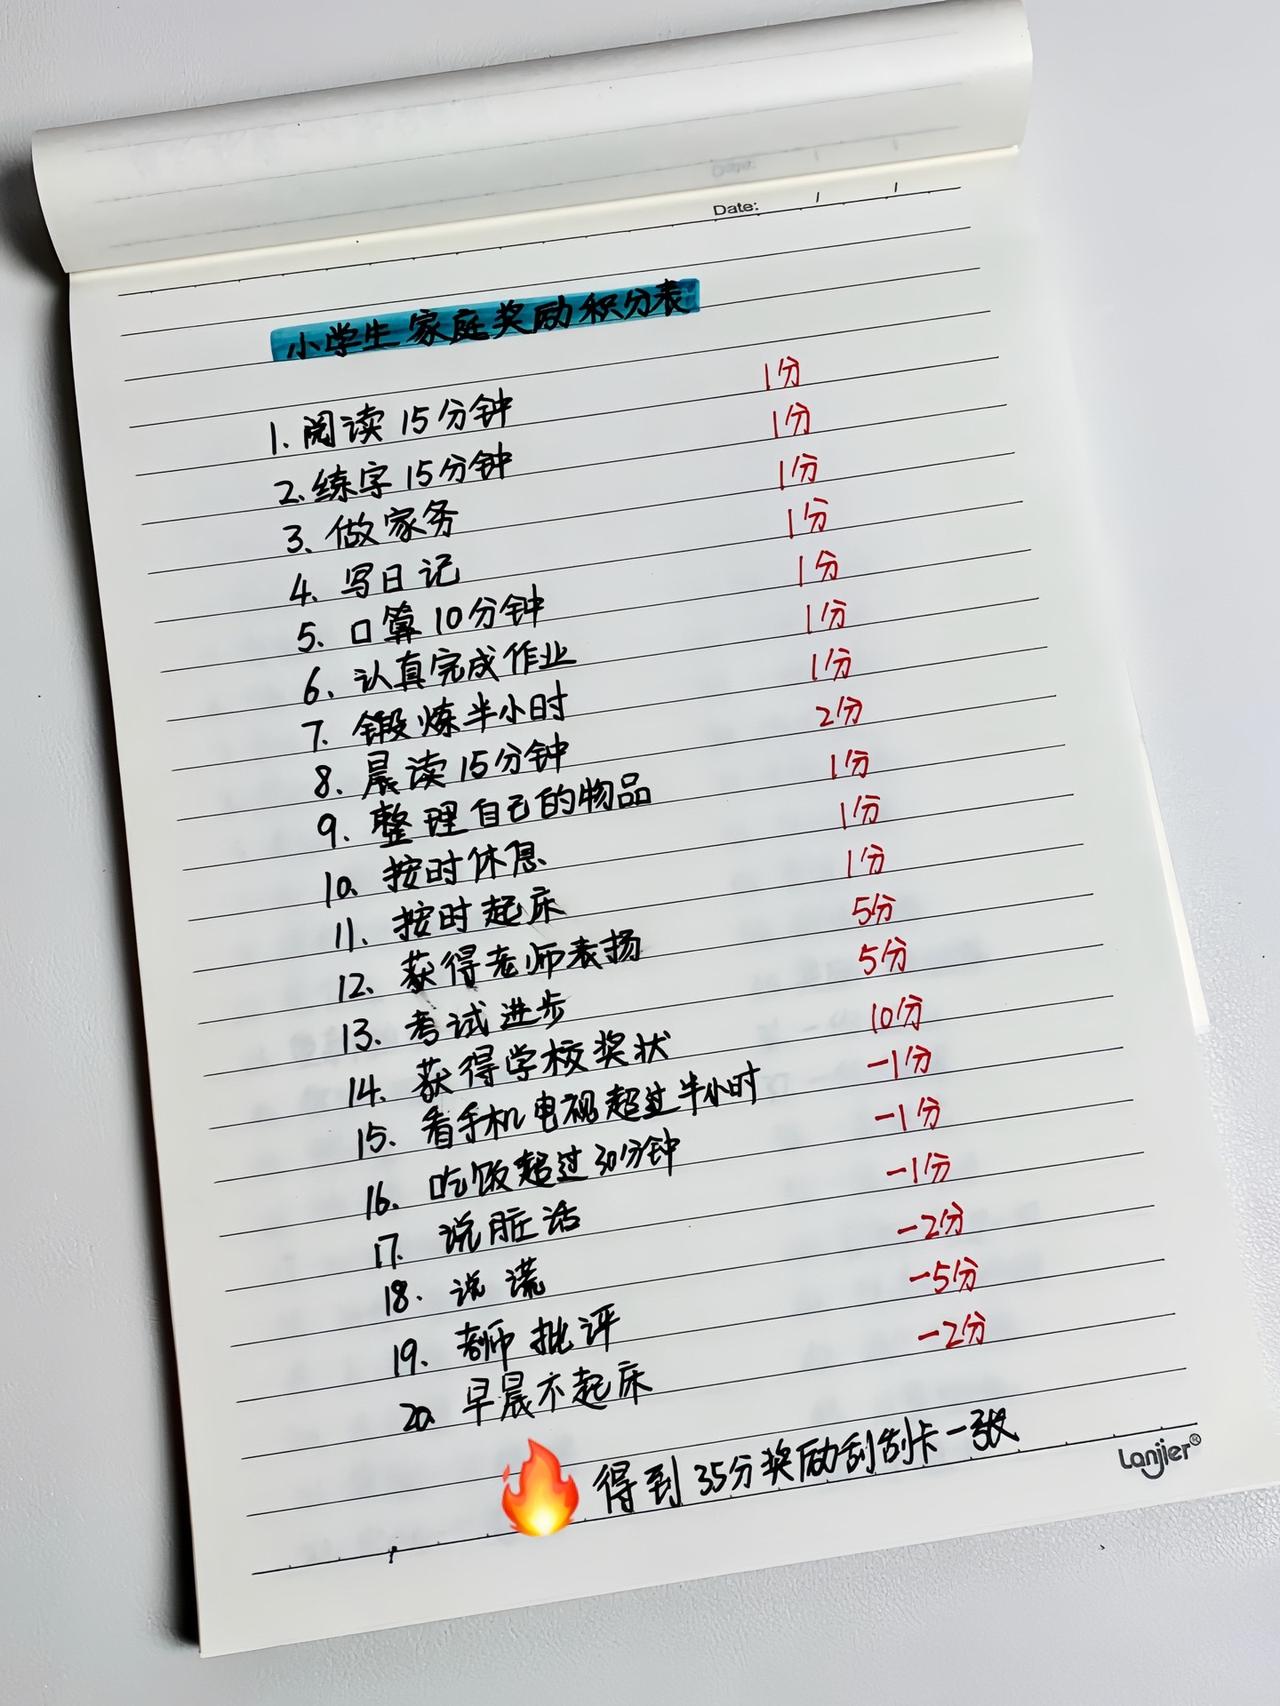 Date: / /
小学生家庭奖励积分表
1. 阅读15分钟 1分
2. 练字15分钟 1分
3. 做家务 1分
4. 写日记 1分
5. 口算10分钟 1分
6. 认真完成作业 1分
7. 锻炼半小时 1分
8. 晨读15分钟 2分
9. 整理自己的物品 1分
10. 按时休息 1分
11. 按时起床 1分
12. 获得老师表扬 5分
13. 考试进步 5分
14. 获得学校奖状 10分
15. 看手机电视超过半小时 -1分
16. 吃饭超过30分钟 -1分
17. 说脏话 -1分
18. 说谎 -2分
19. 老师批评 -5分
20. 早晨不起床 -2分
🔥得到35分奖励刮刮卡一张
Lanjier®